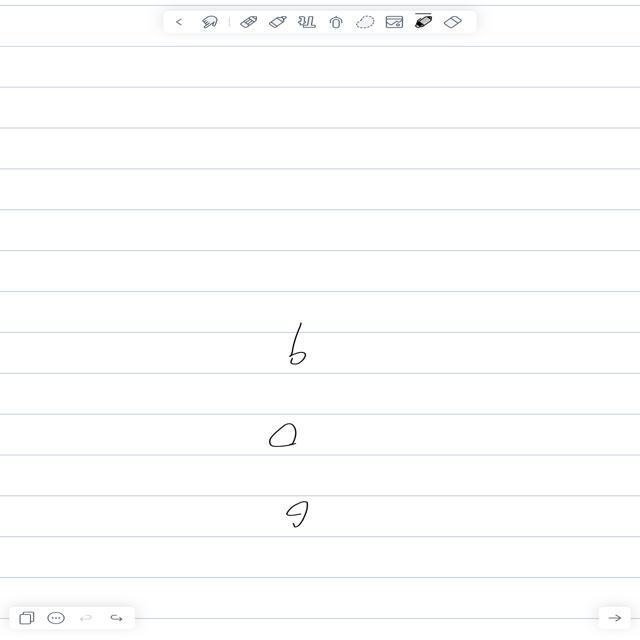 b
a
g